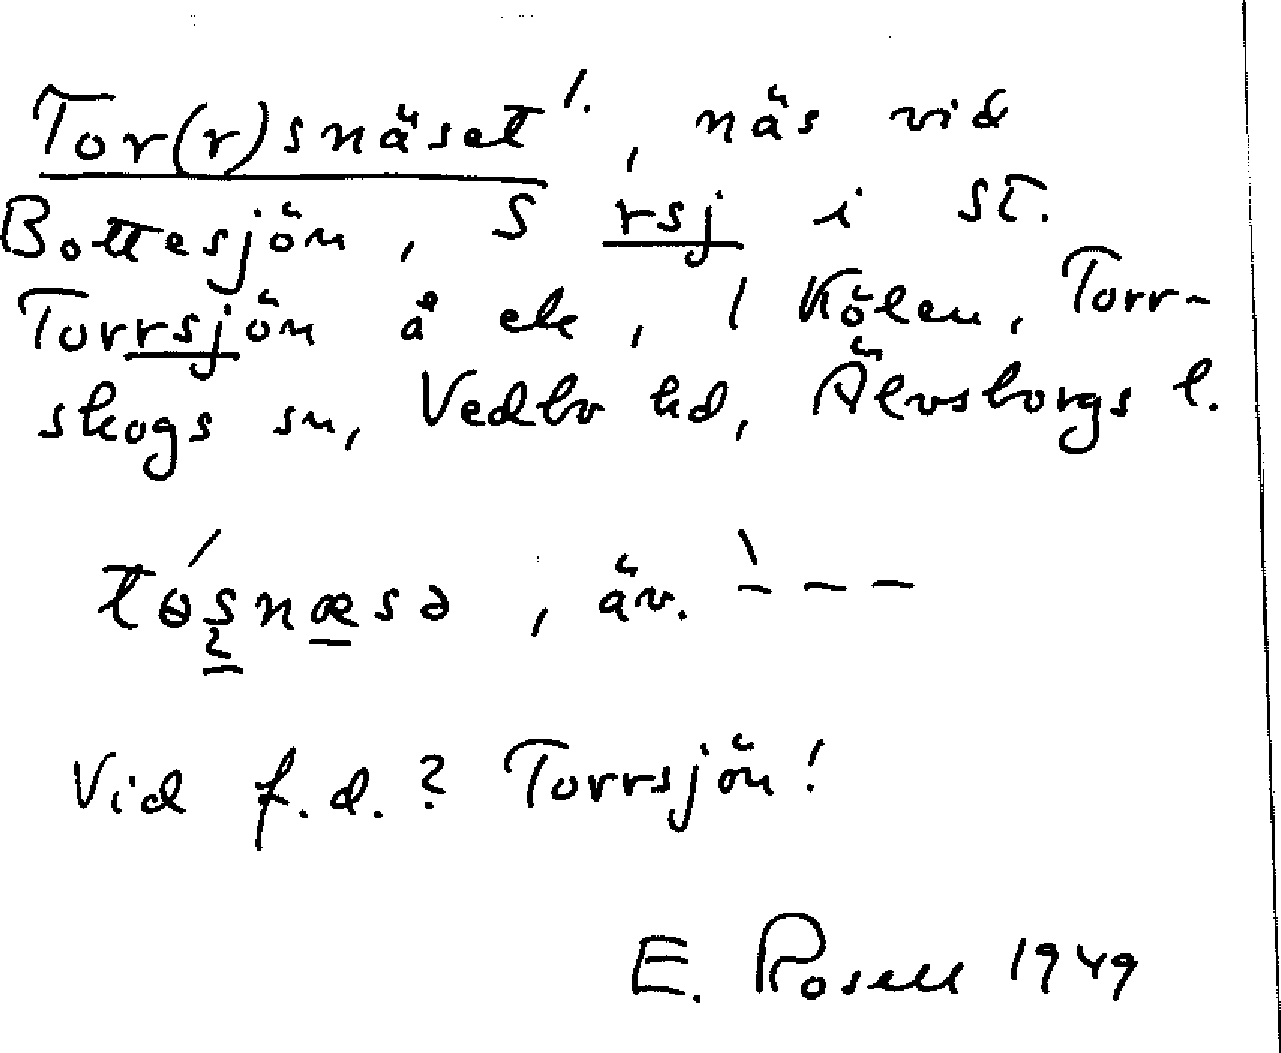 Tor(r)snäset ¹·, näs vid
Bottesjön, S rsj i St.
Torrsjön å ek, 1 Kölen, Torr-
skogs sn, Vedbo hd, Älvsborgs l.
tɵ́s̨næsə, äv. `- - -
Vid f.d.? Torrsjön!
E. Rosell 1949